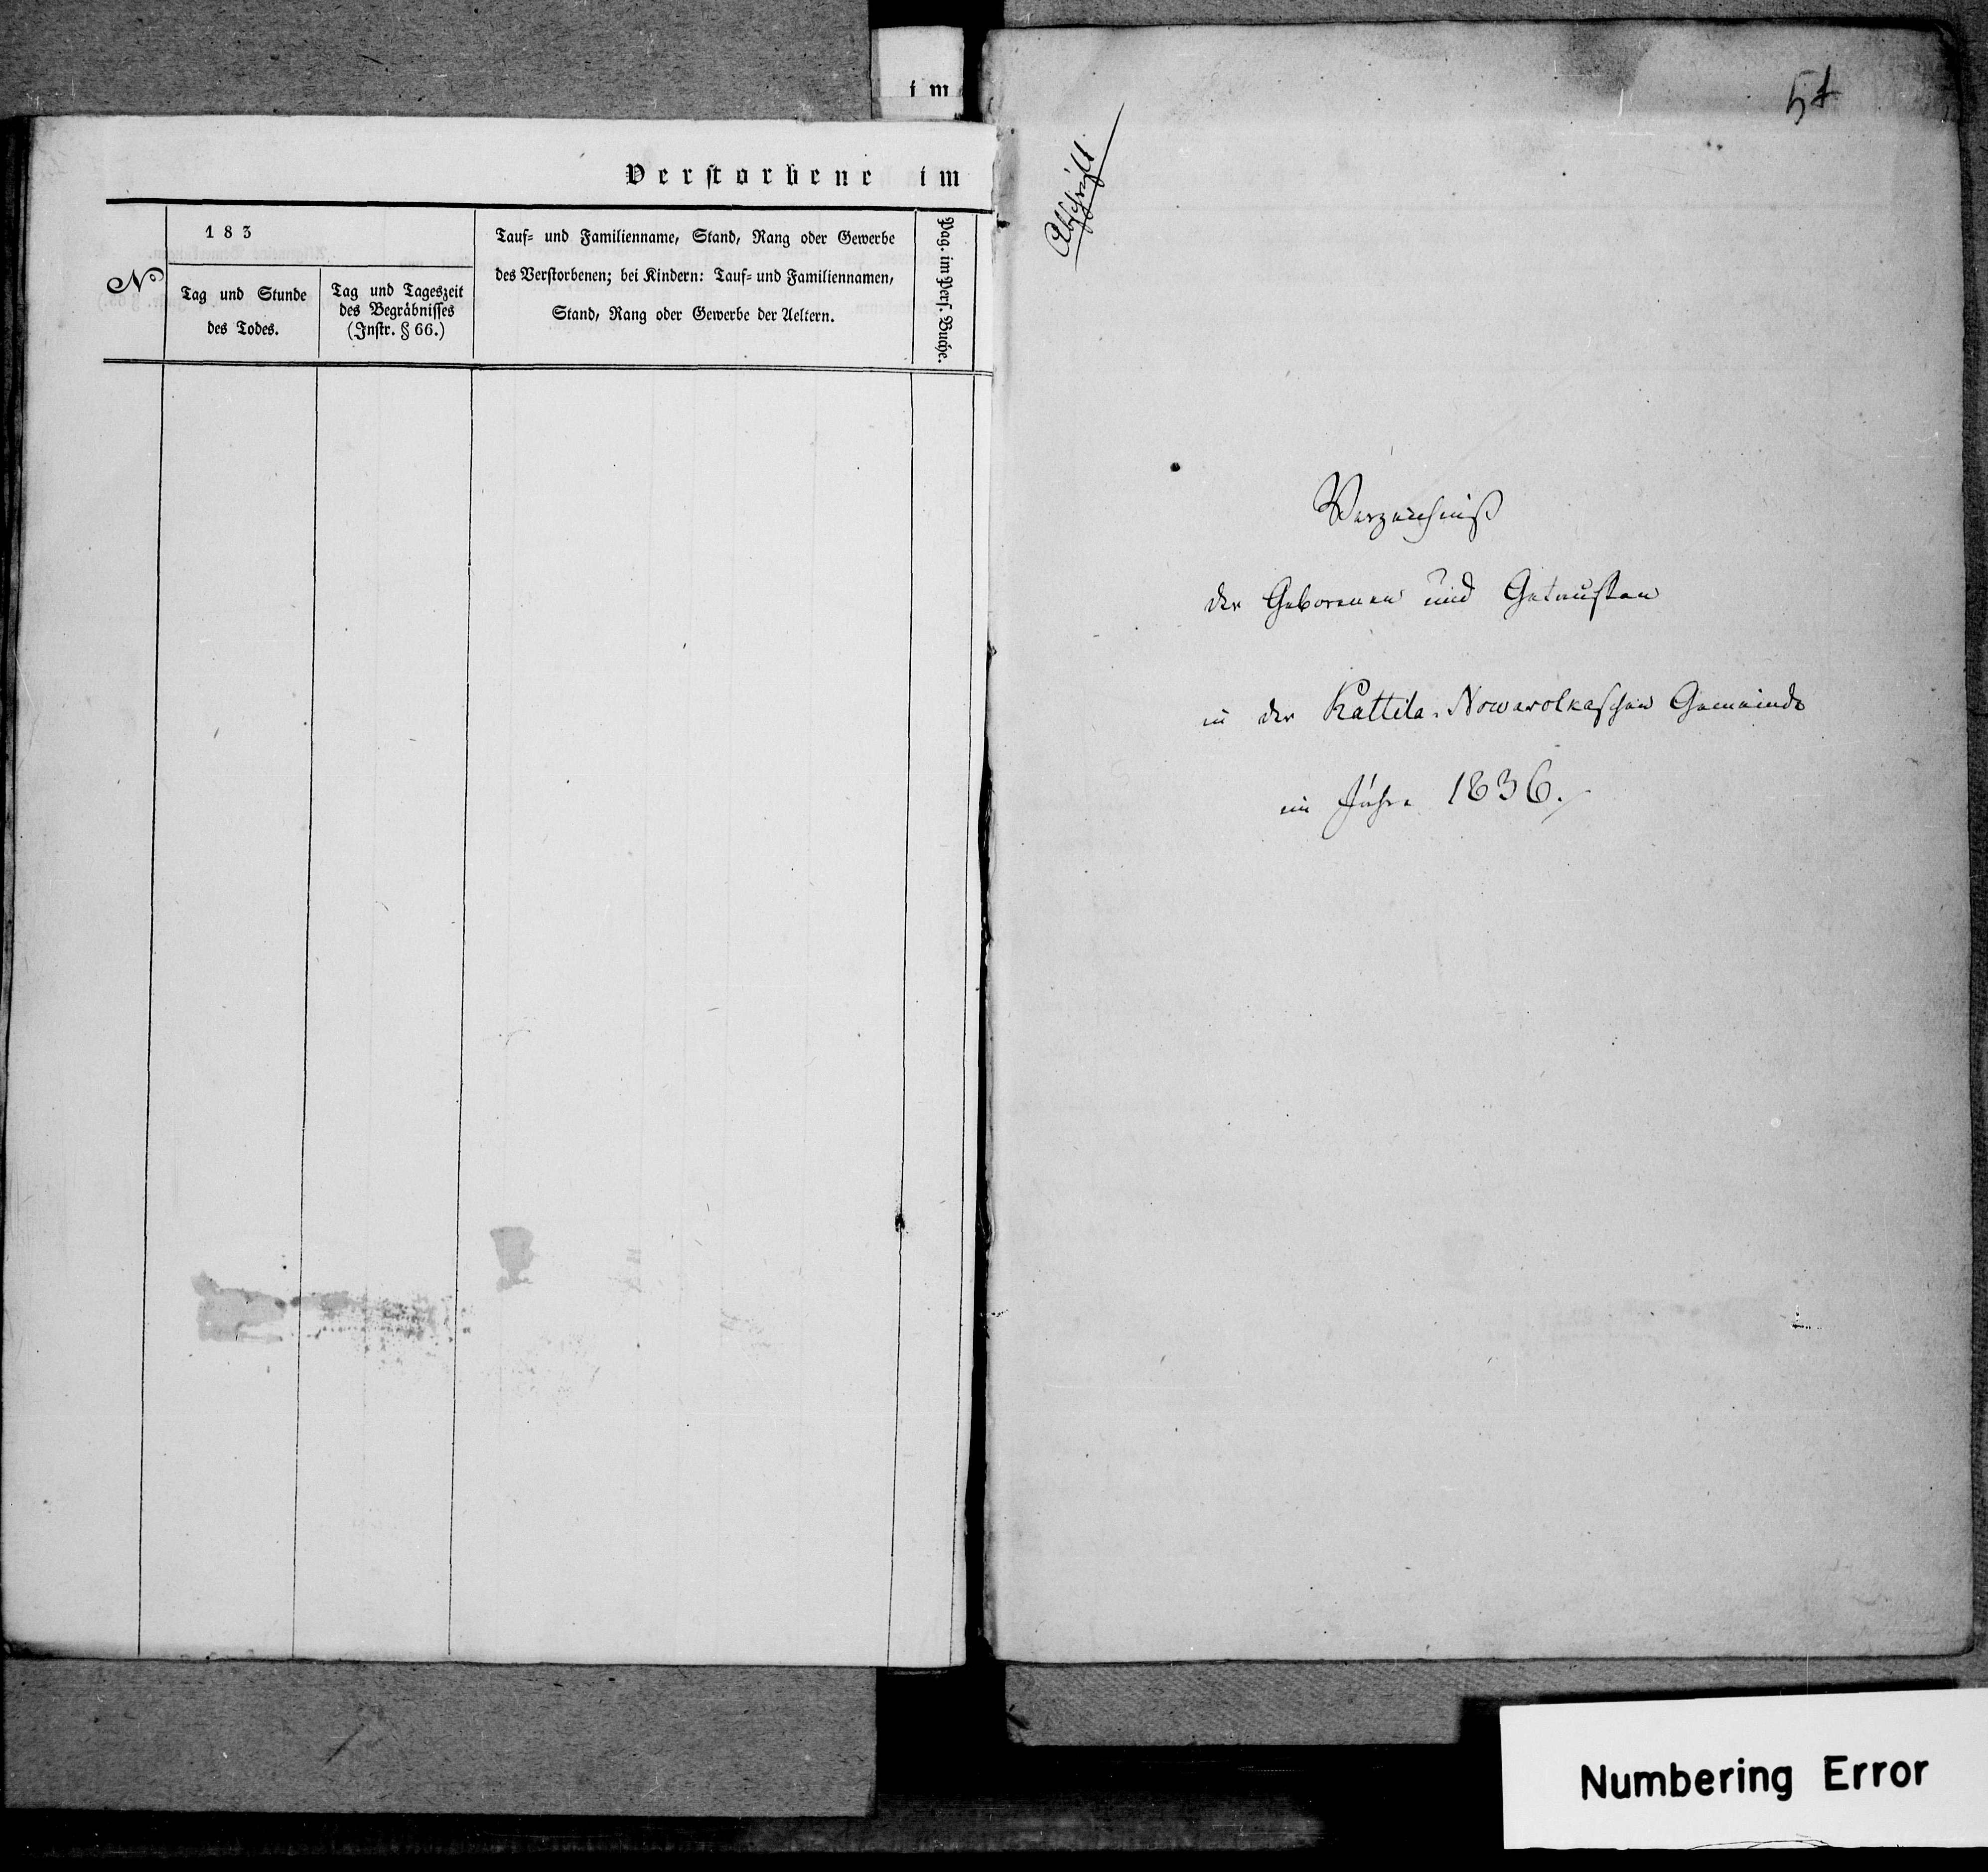 im
Verstorbene im
№
183
Tag und Stunde
des Todes.
Tag und Tageszeit
des Begräbnisses
(Instr. § 66.)
Tauf- und Familienname, Stand, Rang oder Gewerbe
des Verstorbenen; bei Kindern: Tauf- und Familiennamen,
Stand, Rang oder Gewerbe der Aeltern.
Pag. im Pers. Buche.
51
Abschrift
Verzeichniß
der Geborenen und Getauften
in der Kattila-Nowasolkaschen Gemeinde
im Jahre 1836.
Numbering Error